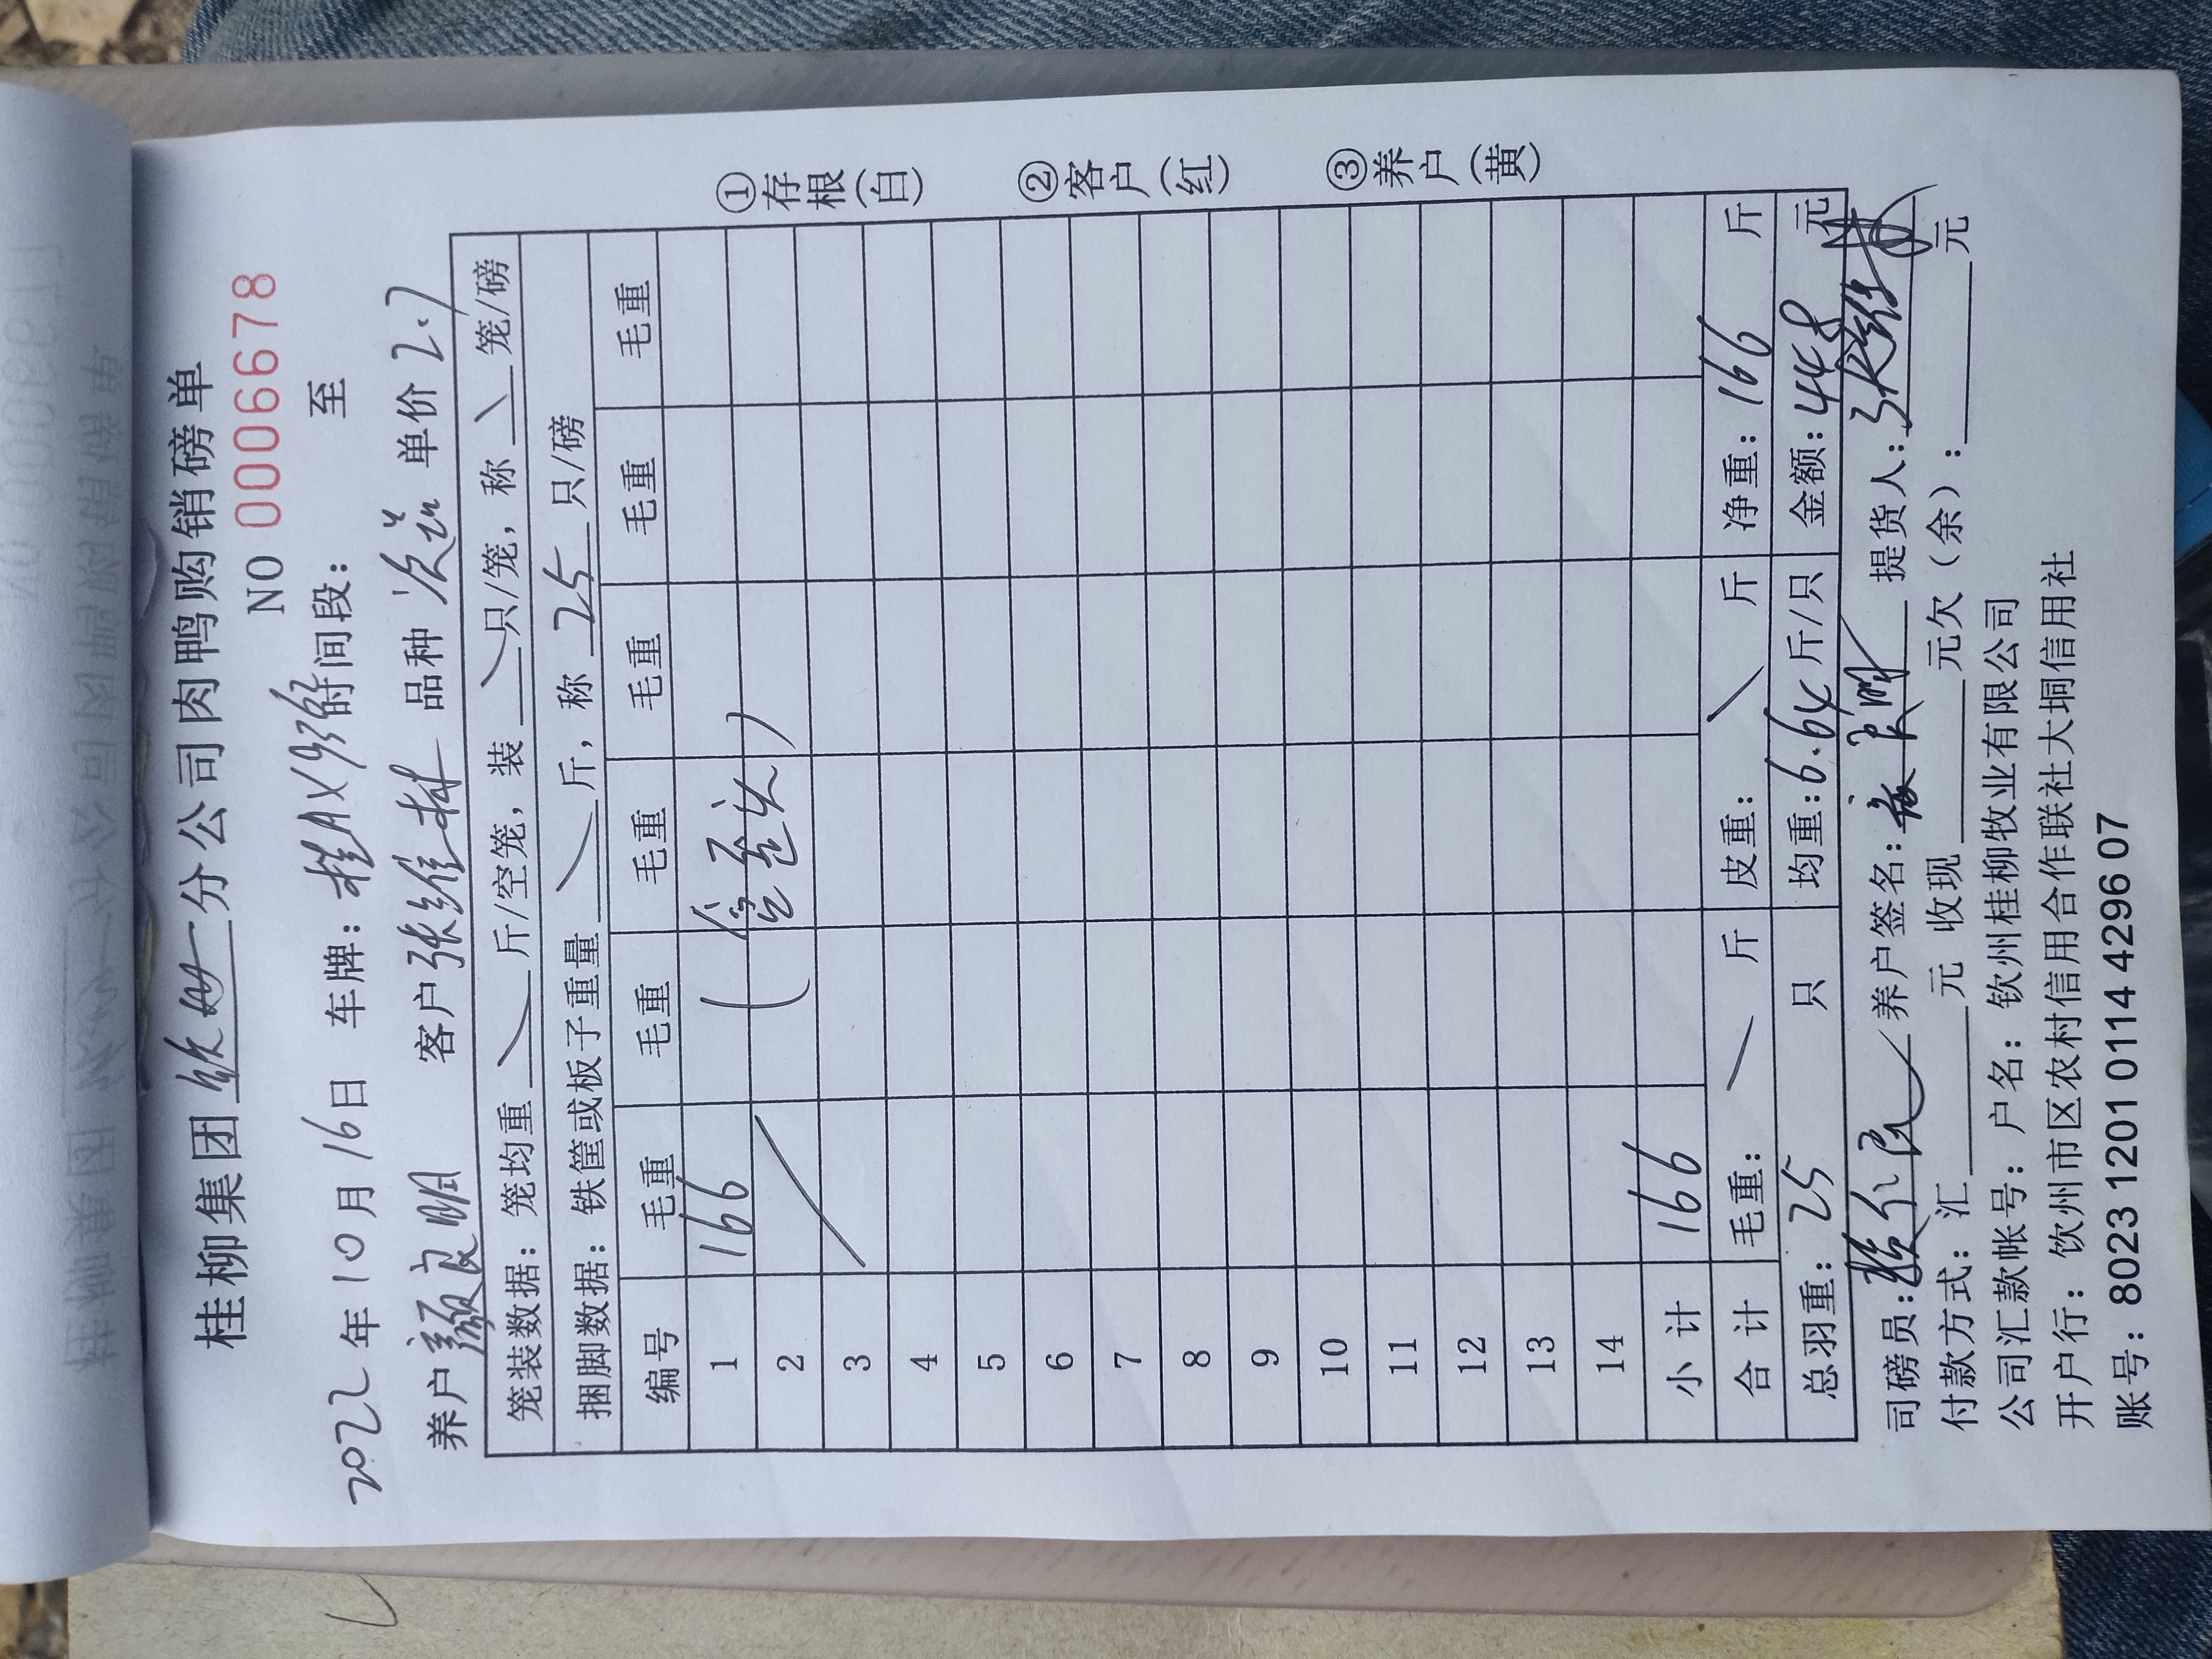 桂柳集团 分公司肉鸭购销磅单
NO 0006678
2022年10月16日 车牌：桂AX 时间段： 至
养户 颜良明 客户 张维林 品种 次品 单价 2.7
笼装数据：笼均重 斤/空笼，装 只/笼，称 笼/磅
捆脚数据：铁筐或板子重量 斤，称 25 只/磅
编号 毛重 毛重 毛重 毛重 毛重 毛重
1 166
2
3
4
5
6
7
8
9
10
11
12
13
14
小计 166
合计 毛重： 斤 皮重： 斤 净重：166 斤
总羽重：25 只 均重：6.64 斤/只 金额：448 元
司磅员： 养户签名： 提货人：
付款方式：汇 元 收现 元欠（余）： 元
公司汇款帐号：户名：钦州桂柳牧业有限公司
开户行：钦州市区农村信用合作联社大垌信用社
账号：8023 1201 0114 4296 07
①存根（白）
②客户（红）
③养户（黄）